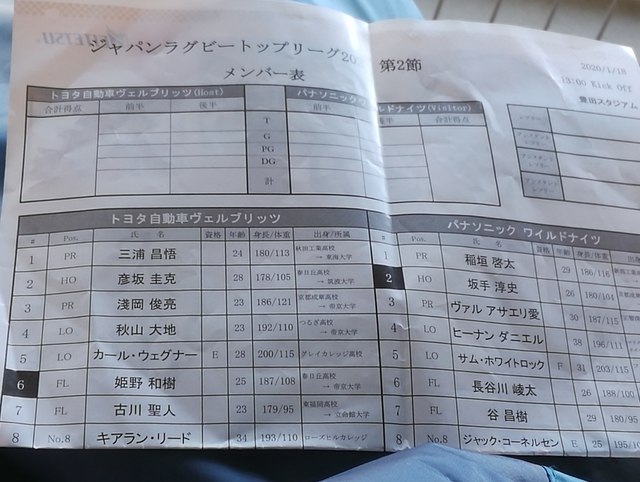 ジャパンラグビートップリーグ20 第2節
メンバー表
2020/1/18
13:00 Kick Off
豊田スタジアム
トヨタ自動車ヴェルブリッツ(Host) パナソニック ルドナイツ(Visitor)
合計得点 前半 後半 前半 後半 合計得点
T
G
PG
DG
計
レフリー
アシスタントレフリー
アシスタントレフリー
アシスタントレフリー
トヨタ自動車ヴェルブリッツ
# Pos. 氏 名 資格 年齢 身長/体重 出身/所属
1 PR 三浦 昌悟 24 180/113 秋田工業高校 → 東海大学
2 HO 彦坂 圭克 28 178/105 春日丘高校 → 筑波大学
3 PR 淺岡 俊亮 23 186/121 京都成章高校 → 帝京大学
4 LO 秋山 大地 23 192/110 つるぎ高校 → 帝京大学
5 LO カール・ウェグナー E 28 200/115 グレイカレッジ高校
6 FL 姫野 和樹 25 187/108 春日丘高校 → 帝京大学
7 FL 古川 聖人 23 179/95 東福岡高校 → 立命館大学
8 No.8 キアラン・リード 34 193/110 ローズヒルカレッジ
パナソニック ワイルドナイツ
# Pos. 氏 名 資格 年齢 身長/体重
1 PR 稲垣 啓太 29 186/116
2 HO 坂手 淳史 26 180/104
3 PR ヴァル アサエリ愛 30 187/115
4 LO ヒーナン ダニエル 38 196/111
5 LO サム・ホワイトロック F 31 203/115
6 FL 長谷川 崚太 26 188/100
7 FL 谷 昌樹 29 180/95
8 No.8 ジャック・コーネルセン E 25 195/